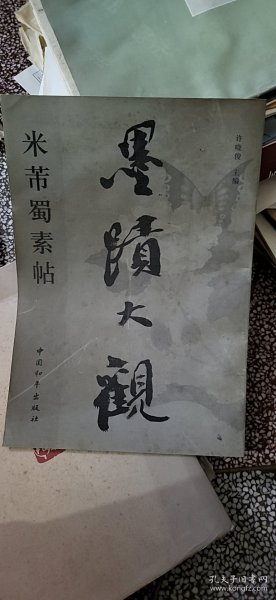 许晓俊 主编
墨蹟大觀
米芾蜀素帖
中国和平出版社
孔夫子旧书网